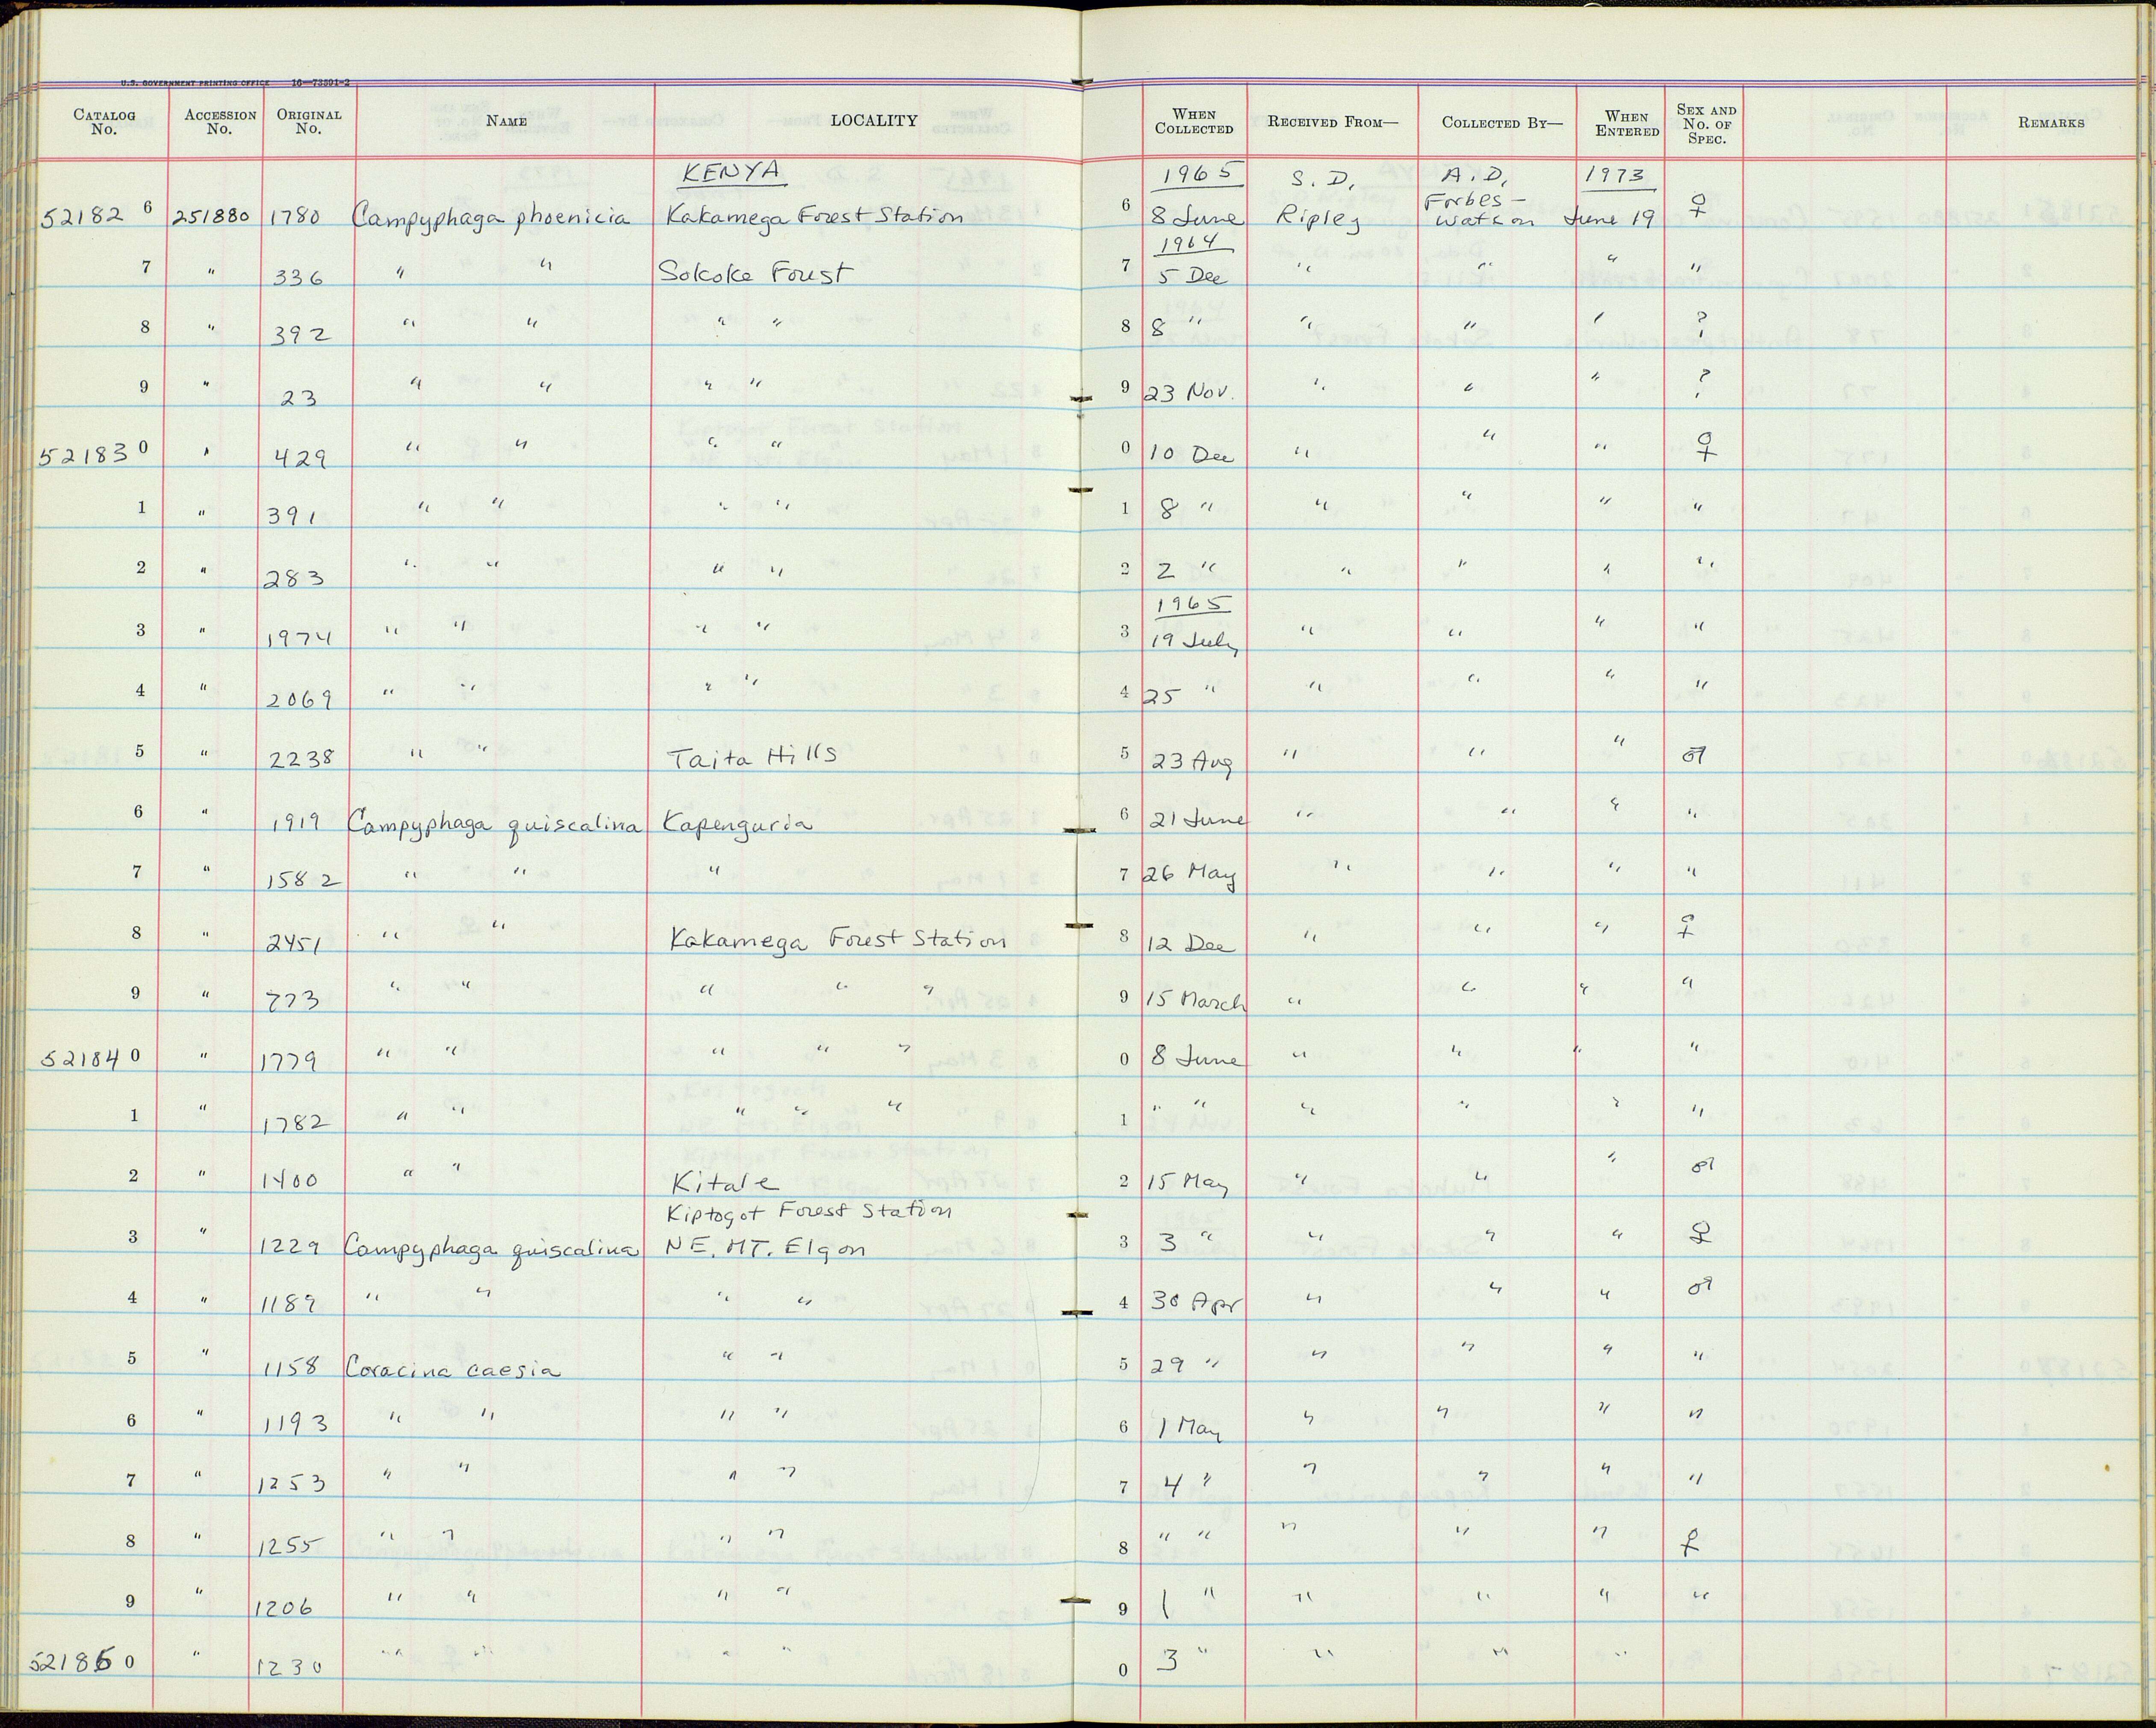 U.S. GOVERNMENT PRINTING OFFICE 16—73591-2
CATALOG No. ACCESSION No. ORIGINAL No. NAME LOCALITY WHEN COLLECTED RECEIVED FROM— COLLECTED BY— WHEN ENTERED SEX AND No. OF SPEC. REMARKS
KENYA 1965 S. D. A. D. 1973
52182 6 251880 1780 Campyphaga phoenicia Kakamega Forest Station 6 8 June Ripley Forbes-Watson June 19 ♀
1964
7 " 336 " " Sokoke Forest 7 5 Dec " " " "
8 " 392 " " " " 8 8 " " " " ?
9 " 23 " " " " 9 23 Nov. " " " ?
52183 0 " 429 " " " " 0 10 Dec " " " ♀
1 " 391 " " " " 1 8 " " " " "
2 " 283 " " " " 2 2 " " " " "
1965
3 " 1974 " " " " 3 19 July " " " "
4 " 2069 " " " " 4 25 " " " " "
5 " 2238 " " Taita Hills 5 23 Aug " " " ♂
6 " 1919 Campyphaga quiscalina Kapenguria 6 21 June " " " "
7 " 1582 " " " 7 26 May " " " "
8 " 2451 " " Kakamega Forest Station 8 12 Dec " " " ♀
9 " 773 " " " " " 9 15 March " " " "
52184 0 " 1779 " " " " " 0 8 June " " " "
1 " 1782 " " " " " 1 " " " " " "
2 " 1400 " " Kitale 2 15 May " " " ♂
Kiptogot Forest Station
3 " 1229 Campyphaga quiscalina NE. MT. Elgon 3 3 " " " " ♀
4 " 1189 " " " " 4 30 Apr " " " ♂
5 " 1158 Coracina caesia " " 5 29 " " " " "
6 " 1193 " " " " 6 1 May " " " "
7 " 1253 " " " " 7 4 " " " " "
8 " 1255 " " " " 8 " " " " " ♀
9 " 1206 " " " " 9 1 " " " " "
52185 0 " 1230 " " " " 0 3 " " " "